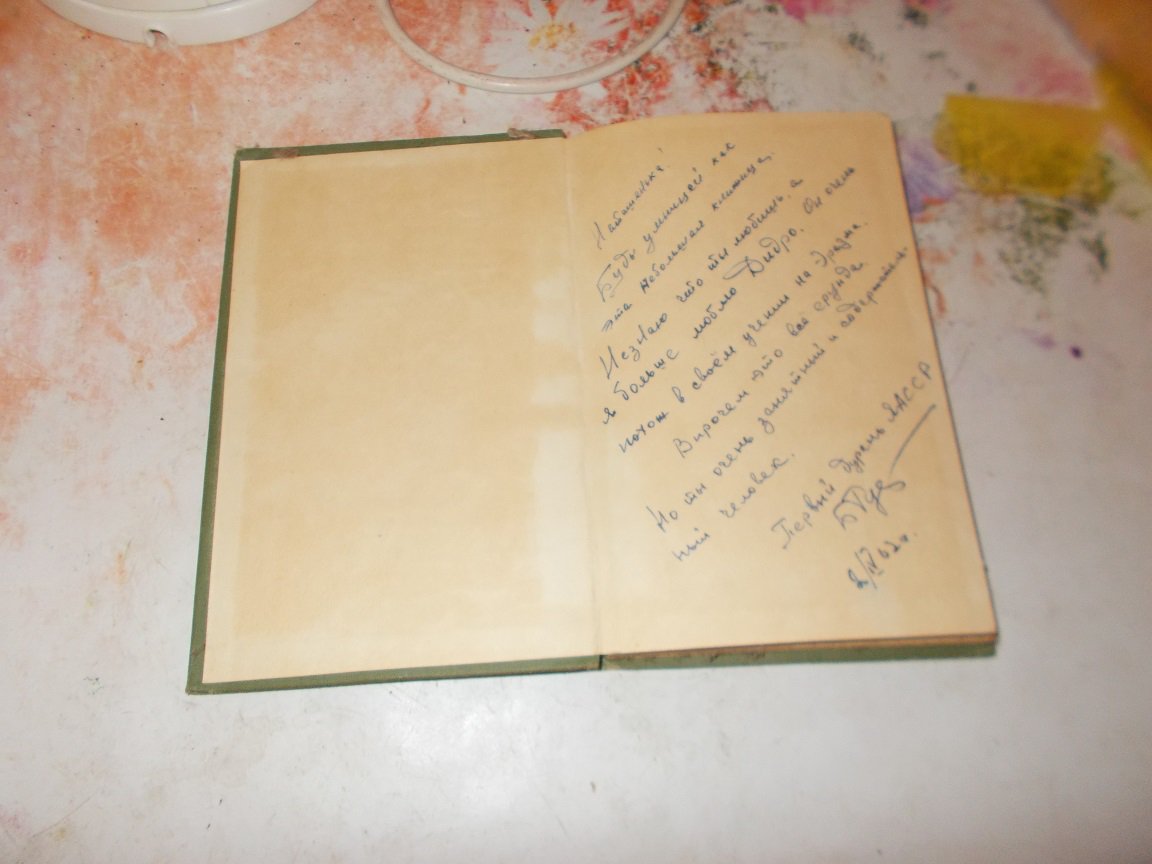 Наташенька!
Будь умницей как
эта небольшая книжица.
Незнаю что ты любишь, а
я больше люблю Дидро. Он очень
похож в своём учении на
Впрочем это всё ерунда.
Но ты очень занятный и содержатель
ный человек.
Первый дурень ЯАССР
2/IV 62г.